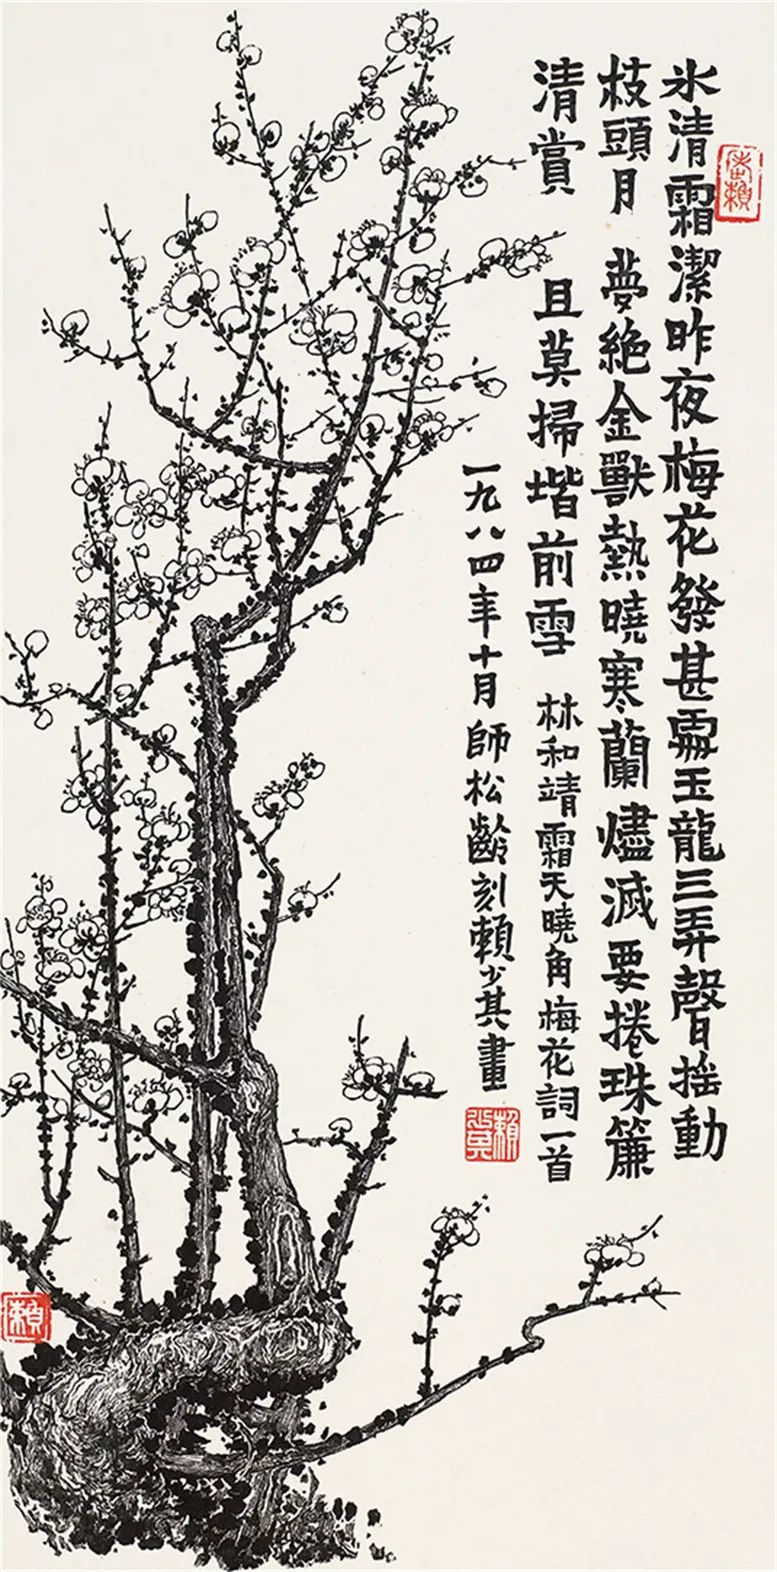 氷清霜潔昨夜梅花發甚處玉龍三弄聲摇動
枝頭月 夢絶金獸熱曉寒蘭燼滅要捲珠簾
清賞 且莫掃堦前雪 林和靖霜天曉角梅花詞一首
一九八四年十月師松齡刻賴少其畫
賴少其
賴